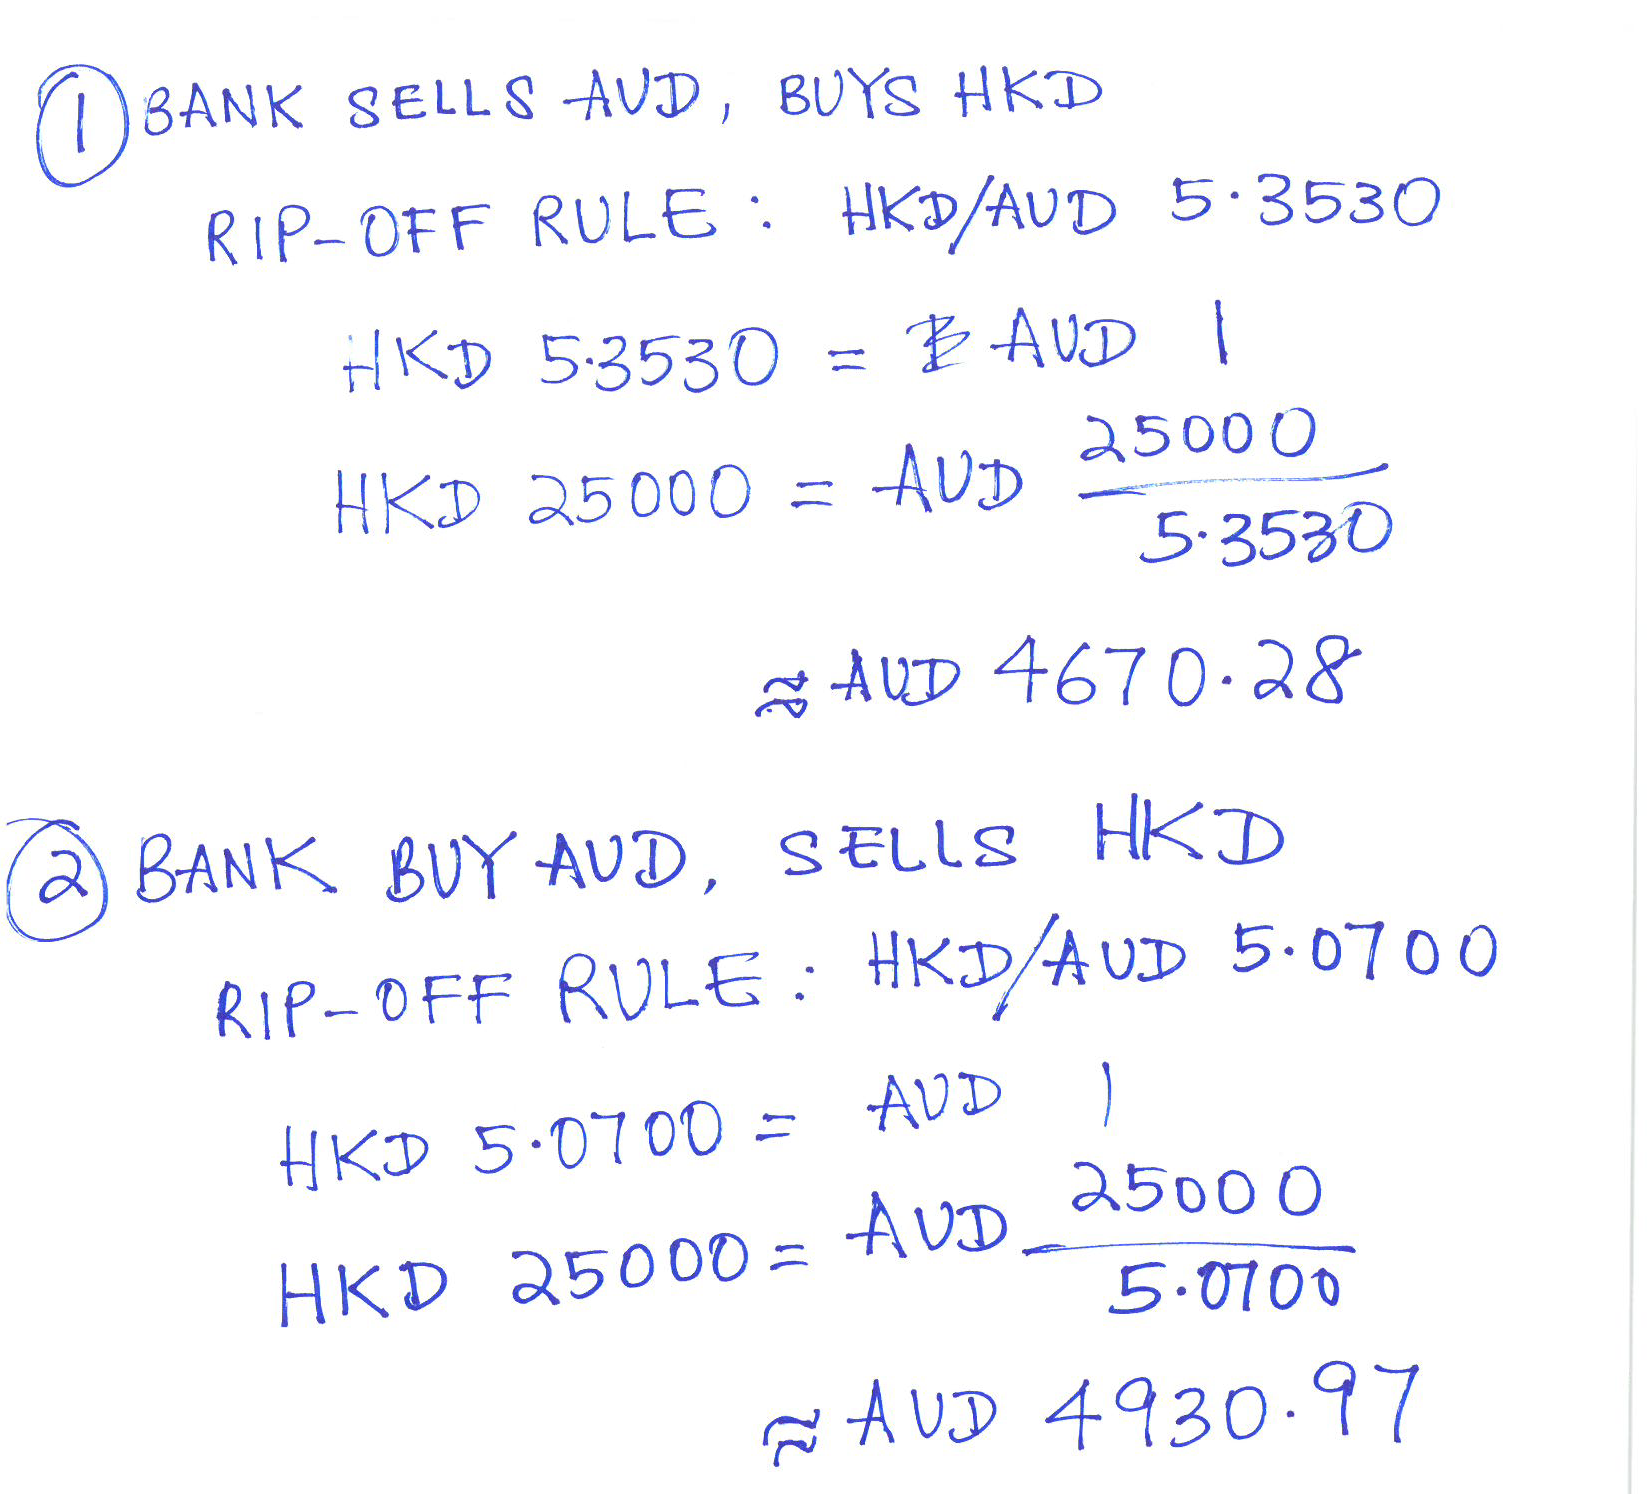 ① BANK SELLS AUD, BUYS HKD
RIP-OFF RULE : HKD/AUD 5.3530
HKD 5.3530 = AUD 1
HKD 25000 = AUD 25000/5.3530
≈ AUD 4670.28
② BANK BUY AUD, SELLS HKD
RIP-OFF RULE : HKD/AUD 5.0700
HKD 5.0700 = AUD 1
HKD 25000 = AUD 25000/5.0700
≈ AUD 4930.97